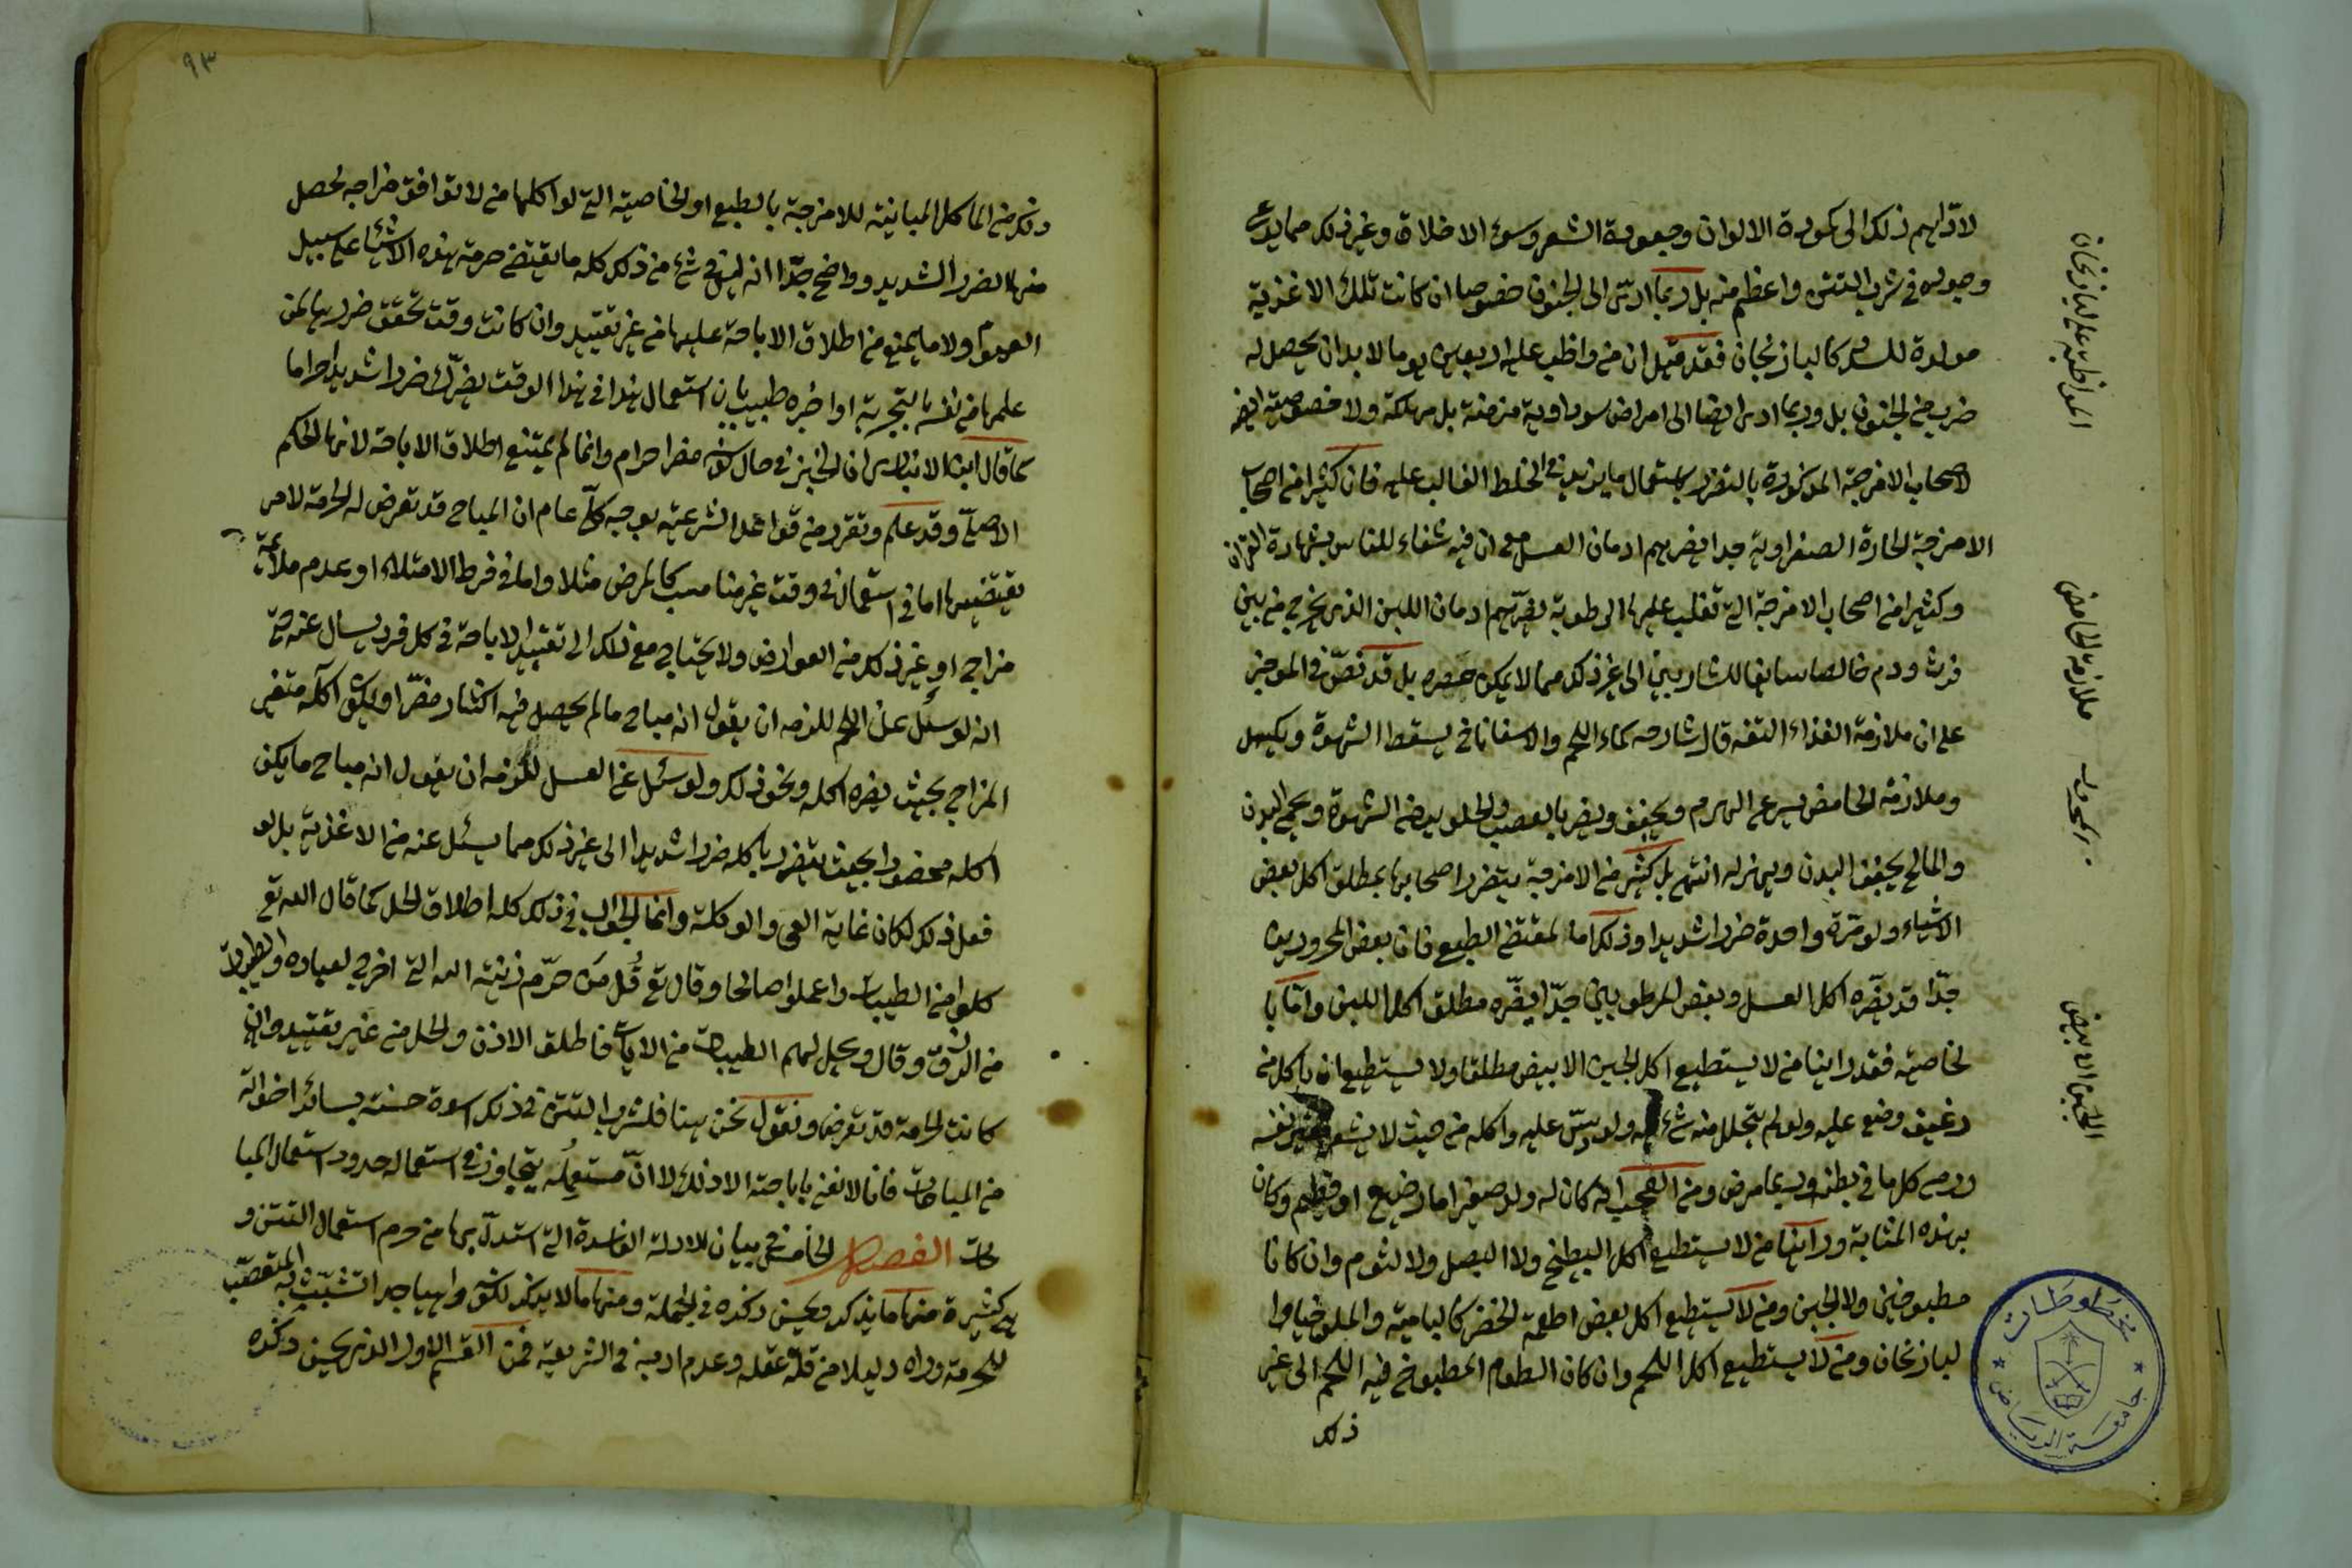 لادّاهم ذلك الى كمودة الالوان وجعودة الشعر وسوء الاخلاق وغير ذلك مما يدعى
وجوده في شرب التتن واعظم منه بل ربما ادى الى الجنون خصوصا ان كانت تلك الاغذية
مولدة للسودا كالباذنجان فقد قيل ان من واظب عليه اربعين يوما لا بد ان يحصل له
ضرب من الجنون بل وربما ادى ايضا الى امراض سوداوية مزمنة بل مهلكة ولا خصوصية
لاصحاب الامزجة المذكورة بالتضرر باستعمال ما يزيد في الخلط الغالب عليه فان كثيرا من اصحاب
الامزجة الحارة الصفراوية جدا يضرهم ادمان العسل مع ان فيه شفاء للناس بشهادة القران
وكثيرا من اصحاب الامزجة التي تغلب عليها الرطوبة يضرهم ادمان اللبن الذي يخرج من بين
فرث ودم خالصا سايغا للشاربين الى غير ذلك مما لا يمكن حصره بل قد نصّ في الموجز
على ان ملازمة الغذاء التفه قال شارحه كماء اللحم والاسفاناخ يسقط الشهوة ويكسل
وملازمة الحامض يسرع الهرم ويجفف ويضر بالعصب والحلو يرخي الشهوة ويحمي البدن
والمالح يجفف البدن ويهزله انتهى بل كثير من الامزجة يتضرر اصحابها بمطلق اكل بعض
الاشياء ولو مرة واحدة ضررا شديدا وذلك اما لمقتضى الطبع فان بعض المحرورين
جدّا قد يضّره اكل العسل وبعض المرطوبين جدّا يضّره مطلق اكل اللبن وامّا با
لخاصية فقد راينا من لا يستطيع اكل الجبن الابيض مطلقا ولا يستطيع ان ياكل من
رغيف وضع عليه ولو لم يتحلل منه شئ ولو دسّ عليه واكله من حيث لا يشعر نفسه
ورمى كل ما في بطنه وربما مرض ومن العجب انه كان له ولد صغير اما رضيع او فطيم وكان
بهذه المثابة وراينا من لا يستطيع اكل البطيخ ولا البصل ولا الثوم وان كانا
مطبوخين ولا الجبن ومن لا يستطيع اكل بعض اطعمة الخضر كالبامية والملوخيا وا
لباذنجان ومن لا يستطيع اكل اللحم وان كان الطعام المطبوخ فيه اللحم الى غير
ذلك
المواظبة على الباذنجان
ملازمة الحامض
المحرور
الجبن الابيض
مخطوطات
جامعة الرياض
٩٣
ذلك من الماكل المباينة للامزجة بالطبع او الخاصية التي لو اكلها من لا توافق مزاجه لحصل
منها الضرر الشديد وواضح جدّا انه ليس في شئ من ذلك كله ما يقتضي حرمة هذه الاشياء على سبيل
العموم ولا ما يمنع من اطلاق الاباحة عليها من غير تقييد وان كانت وقت تحقق ضررها لمن
علمها من نفسه بالتجربة او اخبره طبيب بان استعمال هذا في هذا الوقت يضرك ضررا شديدا حراما
كما قال ابن الانباري ان الخبز في حال كونه مضرا حرام وانما لم يمتنع اطلاق الاباحة لانها الحكم
الاصلي وقد علم وتقرر من قواعد الشرعية بوجه كلّي عام ان المباح قد تعرض له الحرمة لامر
يقتضيها اما في استعماله في وقت غير مناسب كالمرض مثلا واما في فرط الامتلاء او عدم ملاءمة
مزاج او غير ذلك من العوارض ولا يحتاج مع ذلك الى تقييد الاباحة في كل فرد يسال عنه حتى
انه لو سئل عن اللحم للزمه ان يقول انه مباح ما لم يحصل فيه اكثار مضرّ او يكون اكله متغير
المزاج بحيث يضره اكله ونحو ذلك ولو سئل عن العسل للزمه ان يقول انه مباح ما يكن
اكله محضورا بحيث يتضرر باكله ضررا شديدا الى غير ذلك مما يسئل عنه من الاغذية بل لو
فعل ذلك لكان غاية العى والوكلة وانما الجواب في ذلك كله اطلاق الحل كما قال الله تع
كلوا من الطيبات واعملوا صالحا وقال تع قُل مَن حرّم زينة الله التي اخرج لعباده والطيبات
من الرزق وقال ويحل لهم الطيبات من الايات فاطلق الاذن والحل من غير تقييد وان
كانت الحرمة قد تعرض ونقول نحن هنا فلشرب التتن في ذلك اسوة حسنة بسائر اخوانه
من المباحات فانا لا نفتي باباحته الا ذلك لا انّ مستعمِلُه يتجاوز في استعماله حدود استعمال المبا
حات الفصل الخامس في بيان للادلة الفاسدة التي استدلّ بها من حرم استعمال التتن و
هي كثيرة منها ما يذكر ويحسن ذكره في الجملة ومنها ما لا يذكر لكونه واهيا جدا تشبّث به المتعصّب
للحرمة وراه دليلا من قلة عقله وعدم ادبه في الشريعة فمن القسم الاول الذي يحسن ذكره